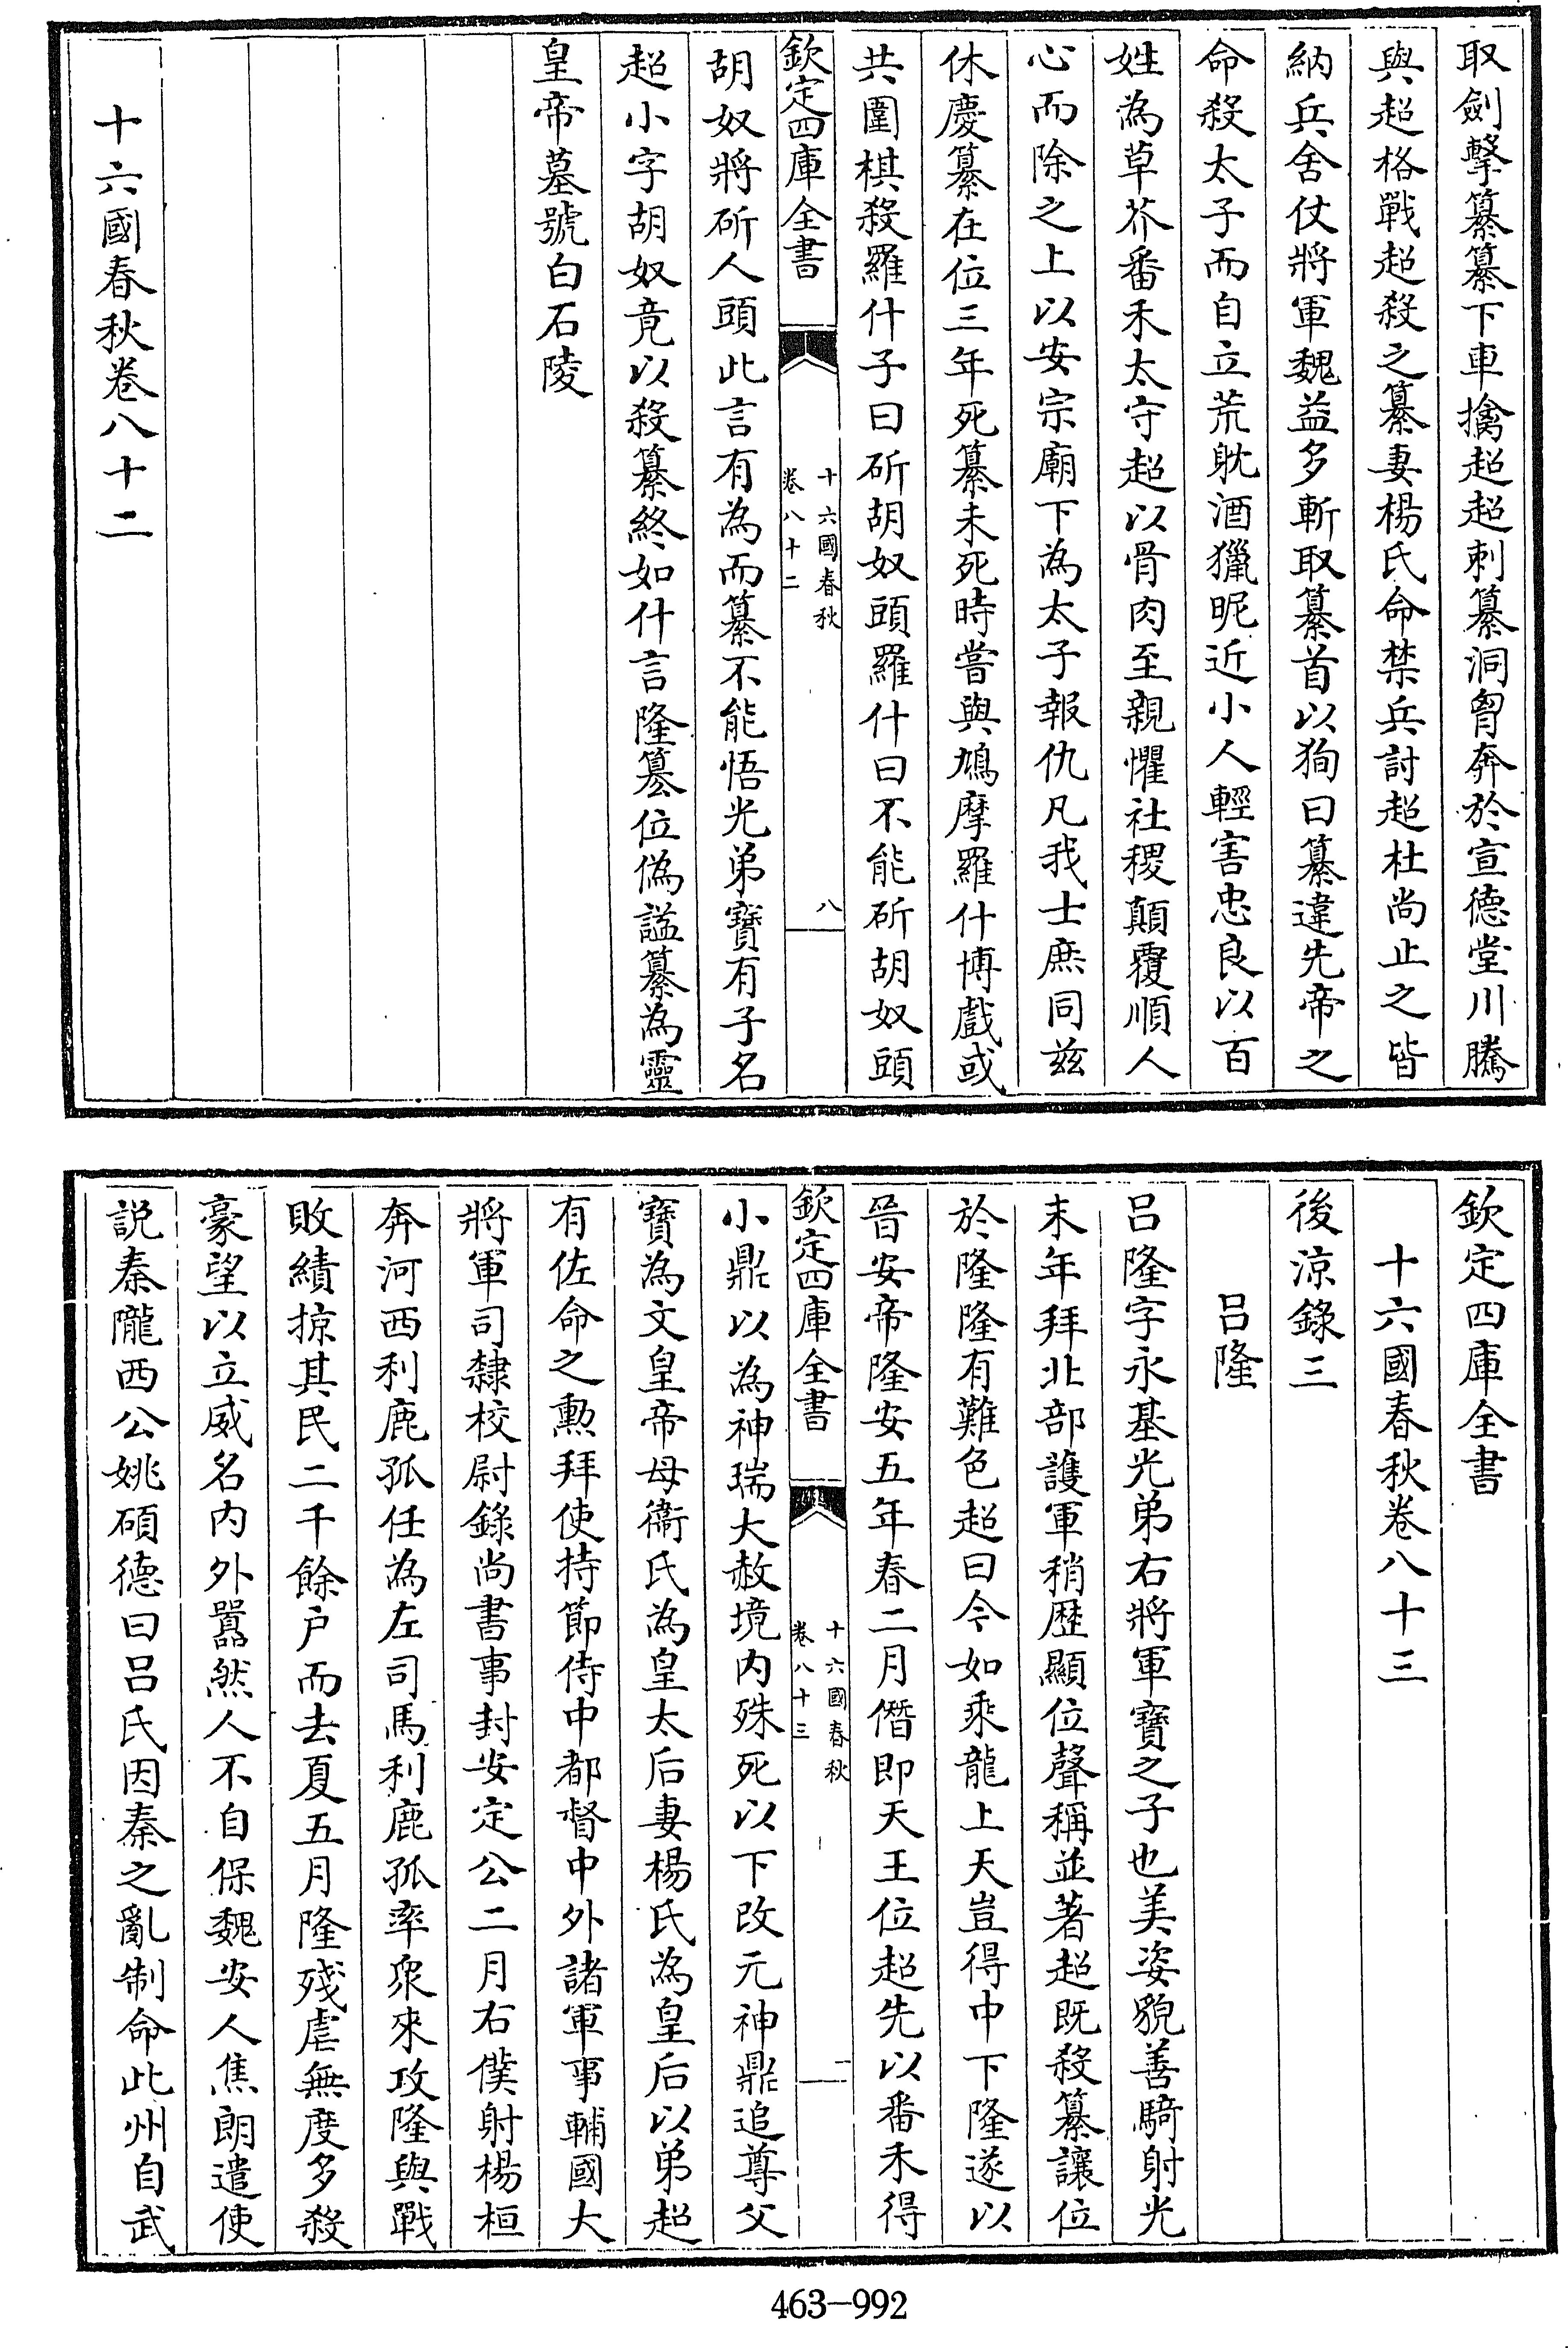 取劍擊纂纂下車擒超超刺纂洞胷奔於宣德堂川騰
與超格戰超殺之纂妻楊氏命禁兵討超杜尚止之皆
納兵舍仗將軍魏益多斬取纂首以狥曰纂違先帝之
命殺太子而自立荒躭酒獵昵近小人輕害忠良以百
姓為草芥番禾太守超以骨肉至親懼社稷顛覆順人
心而除之上以安宗廟下為太子報仇凡我士庶同兹
休慶纂在位三年死纂未死時嘗與鳩摩羅什博戲或
共圍棋殺羅什子曰斫胡奴頭羅什曰不能斫胡奴頭
欽定四庫全書
十六國春秋
卷八十二
八
胡奴將斫人頭此言有為而纂不能悟光弟寶有子名
超小字胡奴竟以殺纂終如什言隆簒位偽諡纂為靈
皇帝墓號白石陵
十六國春秋卷八十二
欽定四庫全書
十六國春秋卷八十三
後涼錄三
呂隆
呂隆字永基光弟右將軍寶之子也美姿貌善騎射光
末年拜北部護軍稍歴顯位聲稱並著超既殺纂讓位
於隆隆有難色超曰今如乘龍上天豈得中下隆遂以
晉安帝隆安五年春二月僭即天王位超先以番禾得
欽定四庫全書
十六國春秋
卷八十三
一
小鼎以為神瑞大赦境内殊死以下改元神鼎追尊父
寶為文皇帝母衞氏為皇太后妻楊氏為皇后以弟超
有佐命之勲拜使持節侍中都督中外諸軍事輔國大
將軍司隸校尉錄尚書事封安定公二月右僕射楊桓
奔河西利鹿孤任為左司馬利鹿孤率衆來攻隆與戰
敗績掠其民二千餘户而去夏五月隆殘虐無度多殺
豪望以立威名内外嚻然人不自保魏安人焦朗遣使
說秦隴西公姚碩德曰呂氏因秦之亂制命此州自武
463—992